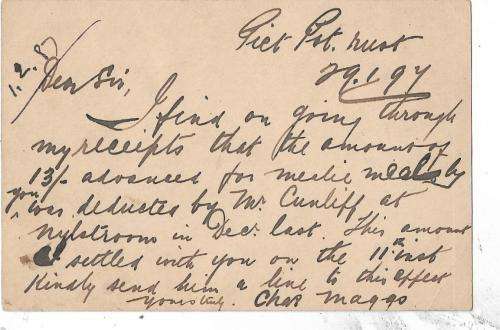 Piet Pot. rust
29.1.97
1.2.97
Dear Sir,
I find on going through
my receipts that the amount of
13/- advanced for mealie meal by
you was deducted by Mr Cunliff at
Nylstroom in Decr. last. This amount
I settled with you on the 11th inst
Kindly send him a line to this effect
Yours truly. Chas Maggs